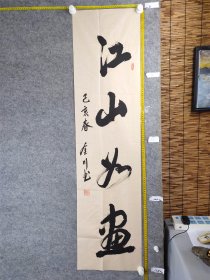 江山如画
己亥春